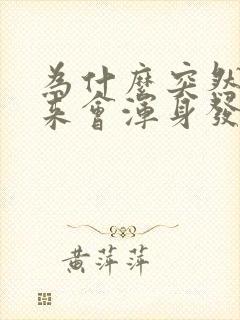 為什麼突然
來會渾身發
黃萍萍